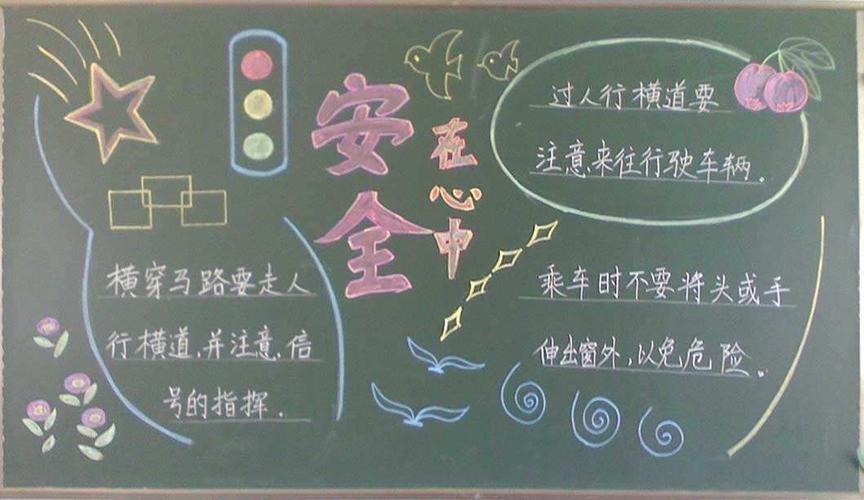 安全
在心中
过人行横道要
注意来往行驶车辆。
横穿马路要走人
行横道,并注意信
号的指挥.
乘车时不要将头或手
伸出窗外,以免危险。